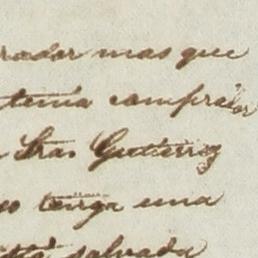 rador mas que
tenía comprador
Stra. Gutierrez
tenga una
salvada